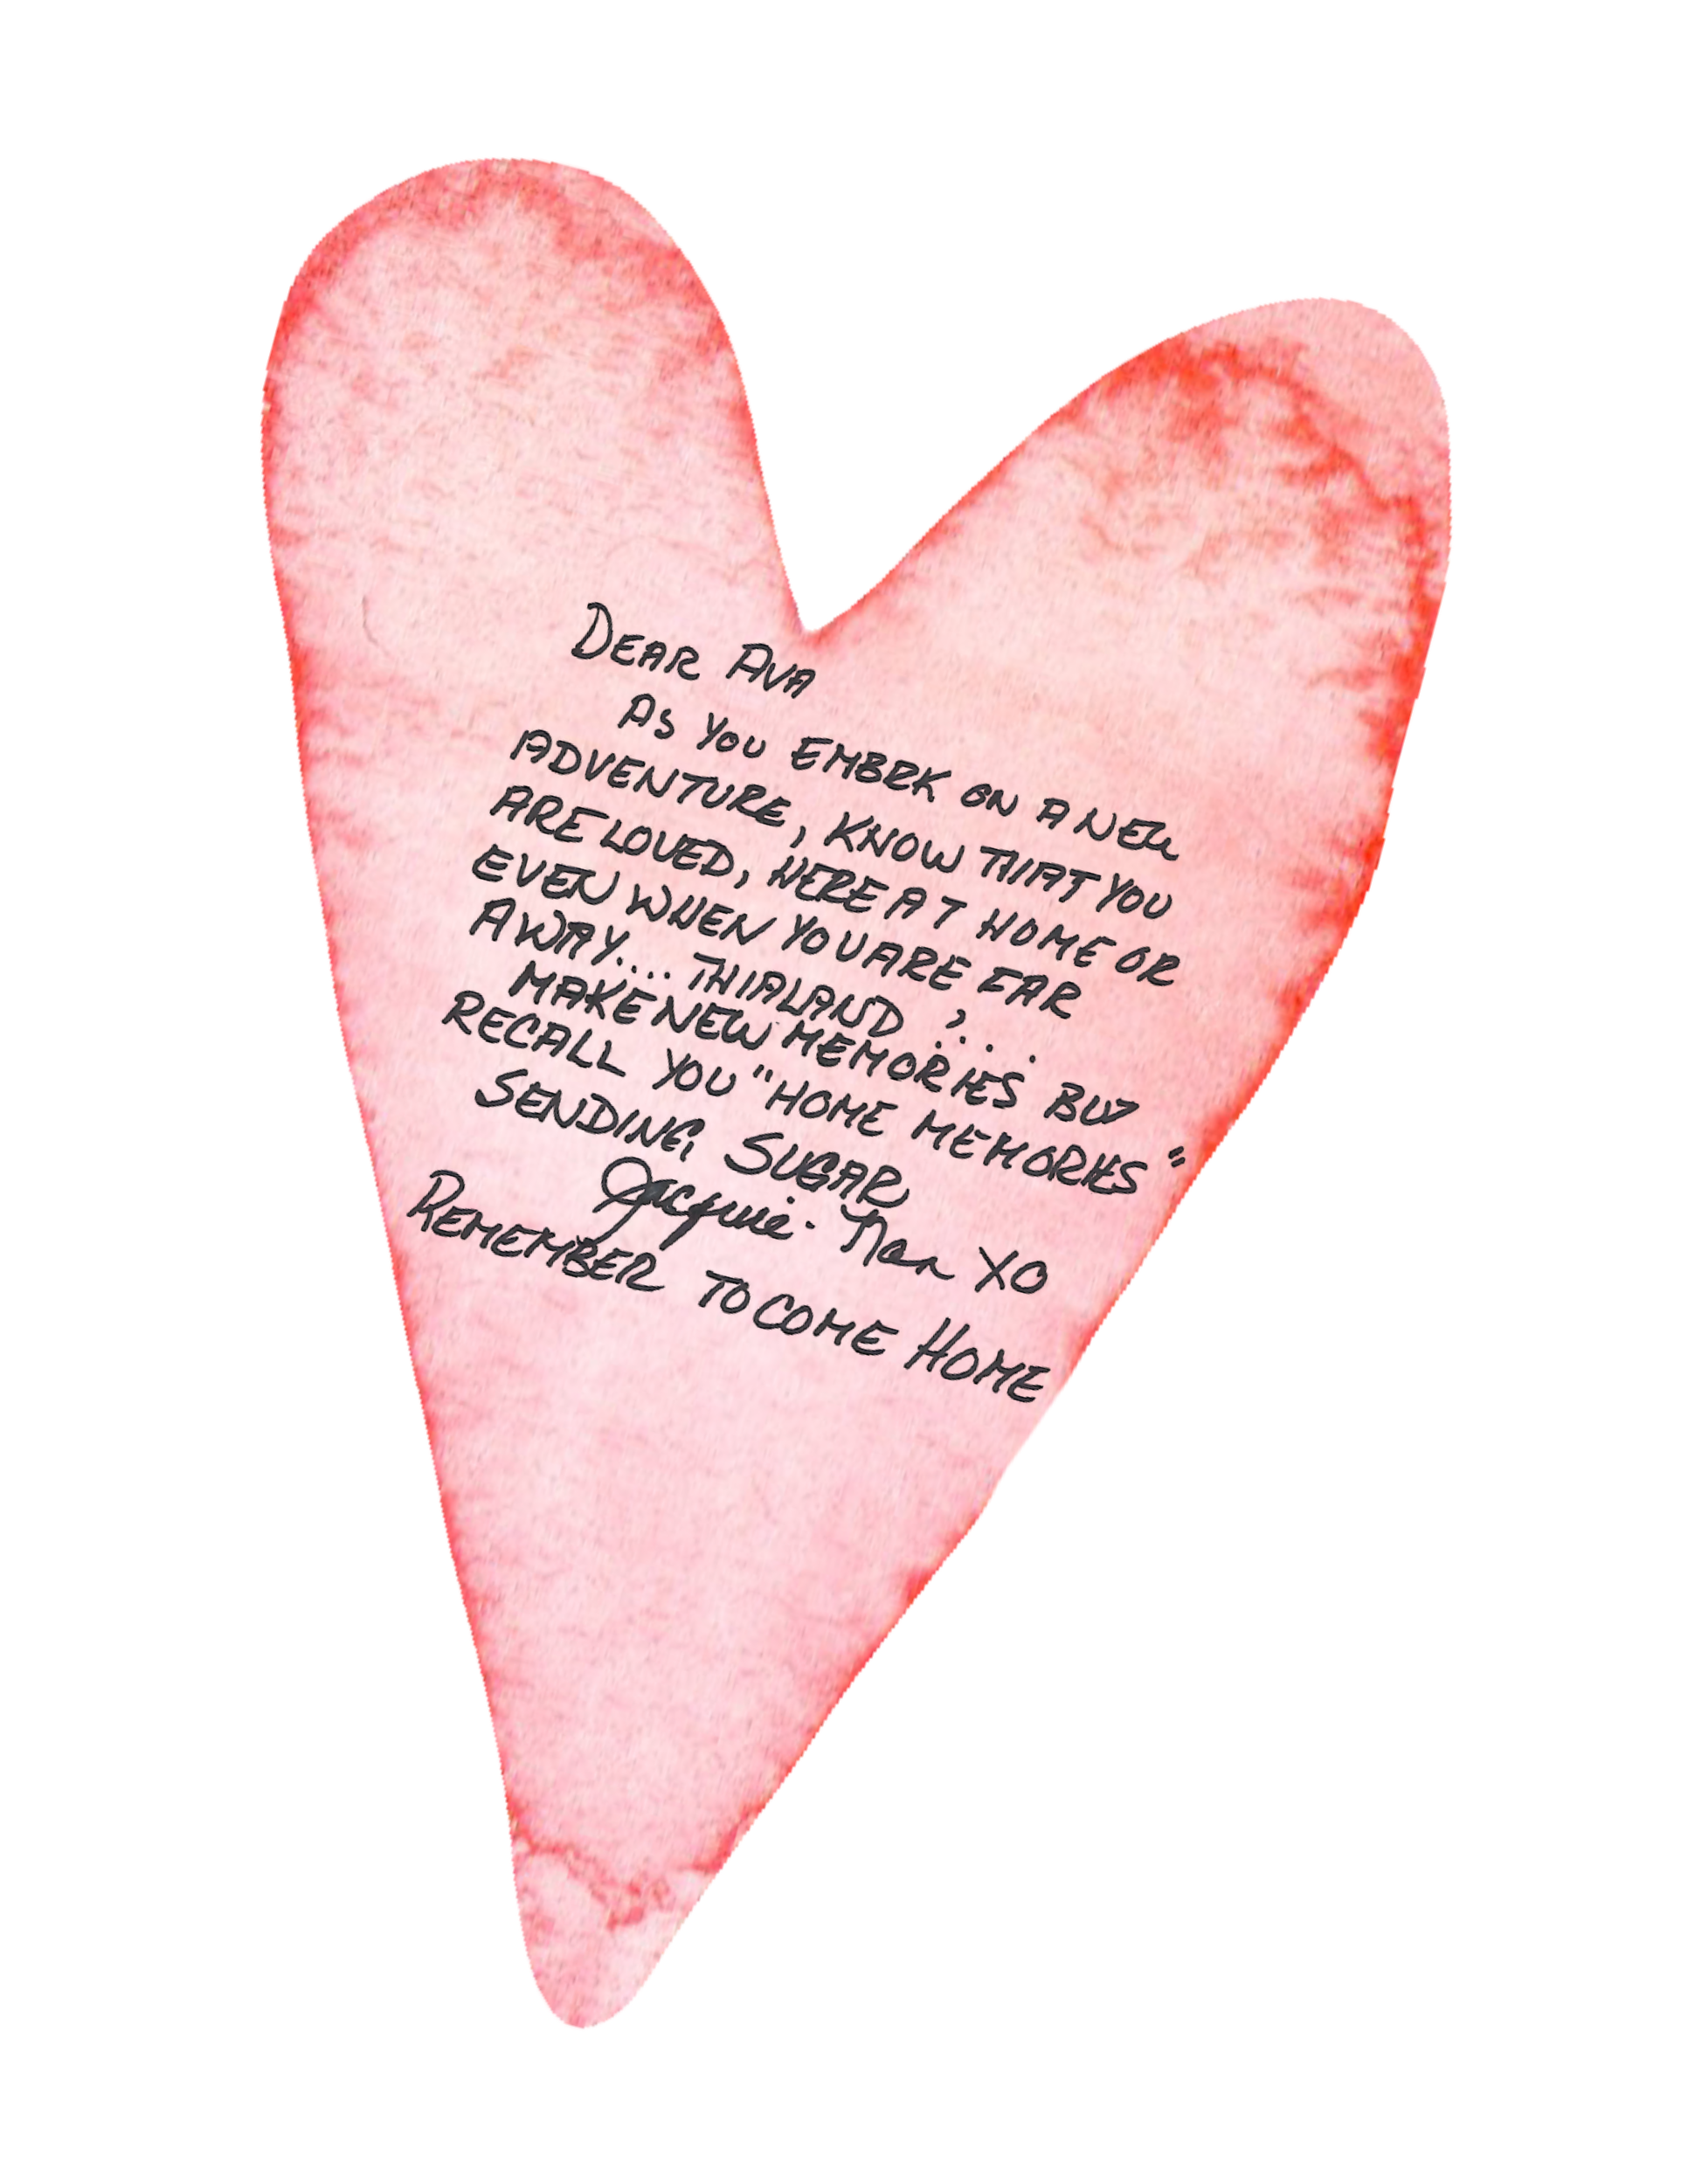 DEAR AVA
AS YOU EMBRK ON A NEW
ADVENTURE, KNOW THAT YOU
ARE LOVED, HERE AT HOME OR
EVEN WHEN YOU ARE FAR
AWAY.... THIALAND ?....
MAKE NEW MEMORIES BUT
RECALL YOU "HOME MEMORIES"
SENDING SUGAR
Jacquie - Nan XO
REMEMBER TO COME HOME